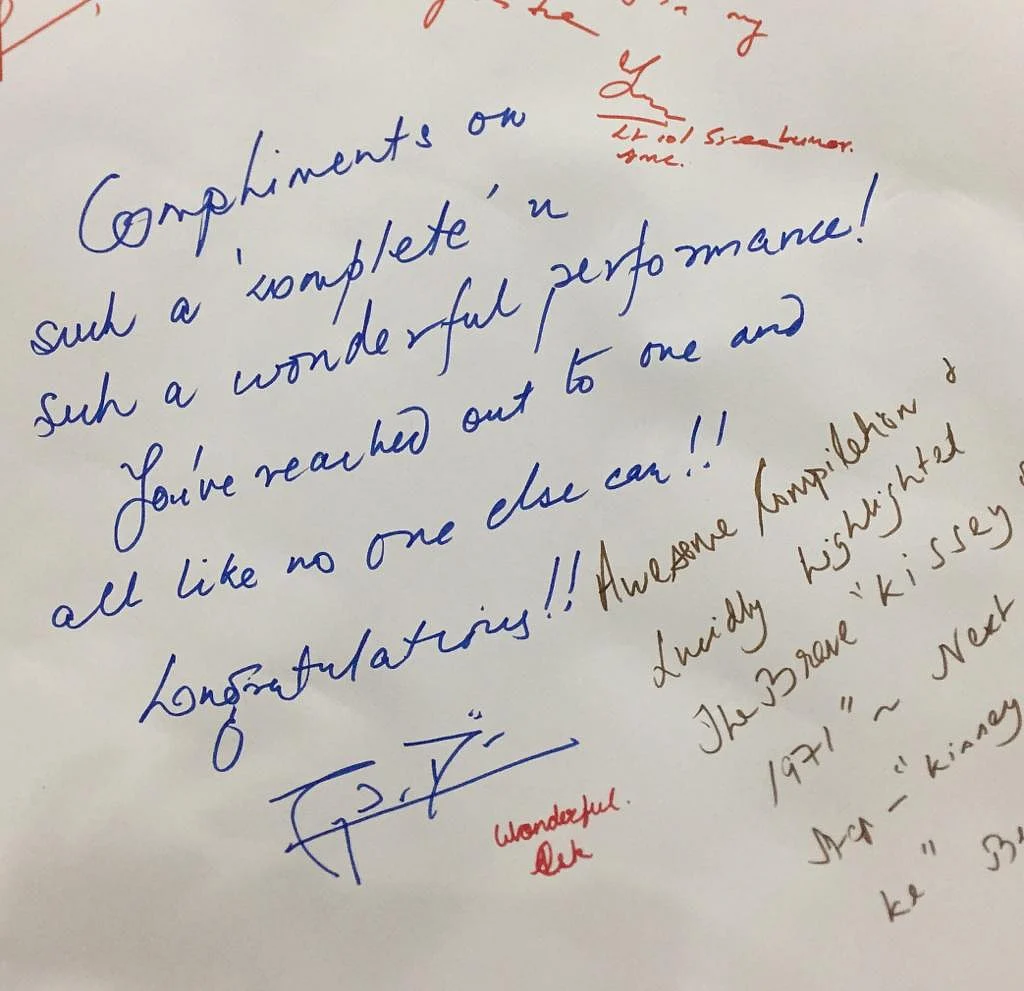 in my
Lt Col Sreekumar.
AMC.
Compliments on
such a 'complete' n
such a wonderful performance!
You've reached out to one and
all like no one else can!!
Congratulations!!
Wonderful.
Awesome Compilation &
Lucidly highlighted
The Brave "Kissey
1971" ~ Next
- "Kinney
ke"